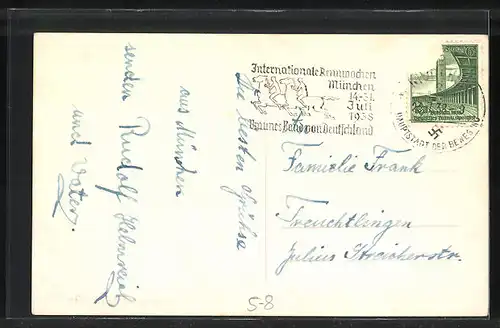 Die besten Grüße
aus München
senden Rudolf Helmreich
und Vater.
Internationale Rennwochen
München
14-31.
Juli
1938
Braunes Band von Deutschland
HAUPTSTADT DER BEWEGUNG
Familie Frank
Treuchtlingen
Julius Streicherstr.
5-8